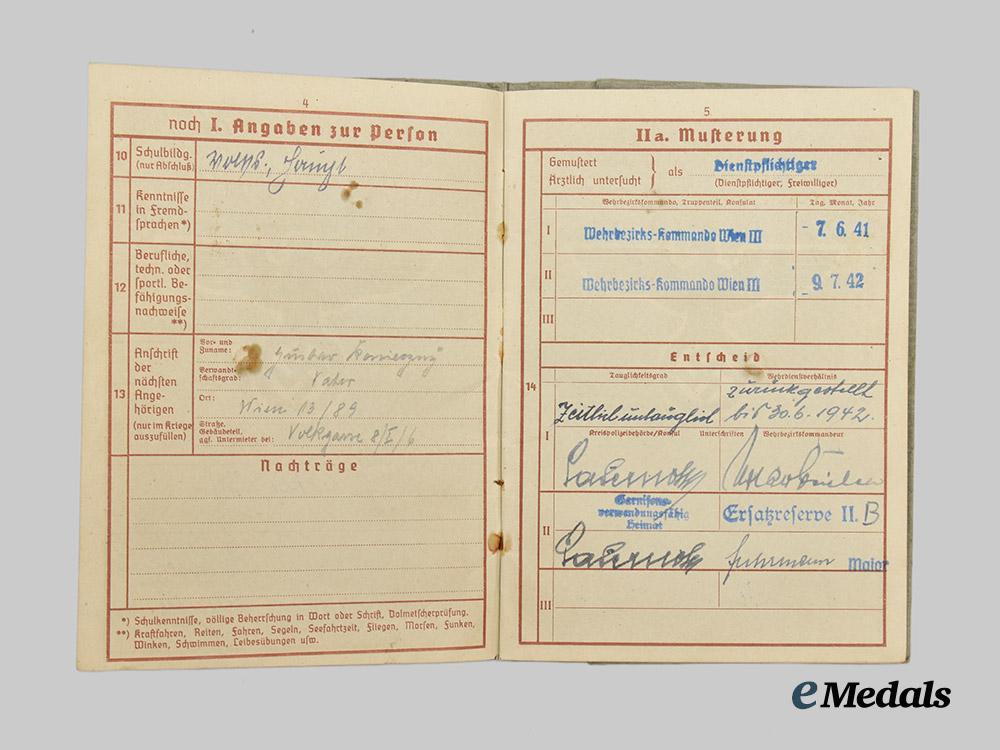 4
noch I. Angaben zur Person
10 Schulbildg. (nur Abschluß)
Volks-, Haupt
11 Kenntnisse in Fremd-
sprachen*)
12 Berufliche,
techn. oder
sportl. Be-
fähigungs-
nachweise
**)
13 Anschrift
der
nächsten
Ange-
hörigen
(nur im Kriege
auszufüllen)
Vor- und
Zuname: Gustav
Verwandt-
schaftsgrad: Vater
Ort: Wien 13/89
Straße,
Gebäudeteil,
ggf. Untermieter bei: 8/I/6
Nachträge
*) Schulkenntnisse, völlige Beherrschung in Wort oder Schrift, Dolmetscherprüfung.
**) Kraftfahren, Reiten, Fahren, Segeln, Seefahrtzeit, Fliegen, Morsen, Funken,
Winken, Schwimmen, Leibesübungen usw.
5
IIa. Musterung
Gemustert
Ärztlich untersucht } als Dienstpflichtiger
(Dienstpflichtiger, Freiwilliger)
Wehrbezirkskommando, Truppenteil, Konsulat Tag, Monat, Jahr
I Wehrbezirks-Kommando Wien III - 7. 6. 41
II Wehrbezirks-Kommando Wien III - 9. 7. 42
III
Entscheid
14 Tauglichkeitsgrad Wehrdienstverhältnis
Zeitlich untauglich zurückgestellt
bis 30.6.1942.
I Kreispolizeibehörde/Konsul Unterschriften Wehrbezirkskommandeur
II Garnisons-
verwendungsfähig
Heimat
Ersatzreserve II. B
Fuhrmann Major
III
eMedals